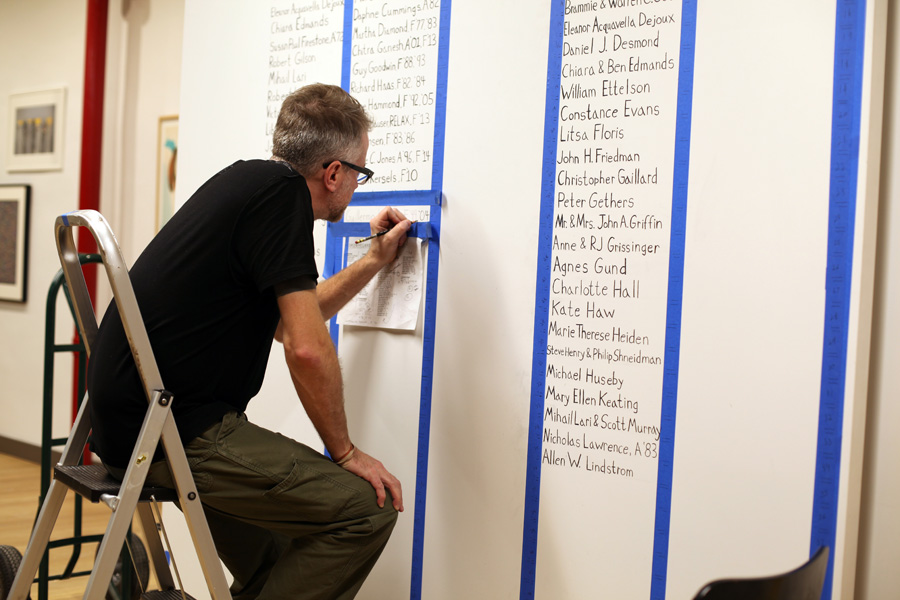 Eleanor Acquavella Dejoux
Chiara Edmands
Susan Paul Firestone A'73
Robert Gilson
Mihail Lari
Daphne Cummings A'82
Mutha Diamond, F'77, 83
Chitra Ganesh A'01, F'13
Guy Goodwin F'88, '93
Richard Haas F'82, '84
Hammond, F'92, '05
RELAX, F'13
F'83, '86
C Jones A'96, F'14
Kersels, F'10
'04
Brammie &
Eleanor Acquavella Dejoux
Daniel J. Desmond
Chiara & Ben Edmands
William Ettelson
Constance Evans
Litsa Floris
John H. Friedman
Christopher Gaillard
Peter Gethers
Mr. & Mrs. John A. Griffin
Anne & RJ Grissinger
Agnes Gund
Charlotte Hall
Kate Haw
Marie Therese Heiden
Steve Henry & Philip Shneidman
Michael Huseby
Mary Ellen Keating
Mihail Lari & Scott Murray
Nicholas Lawrence, A'83
Allen W. Lindstrom